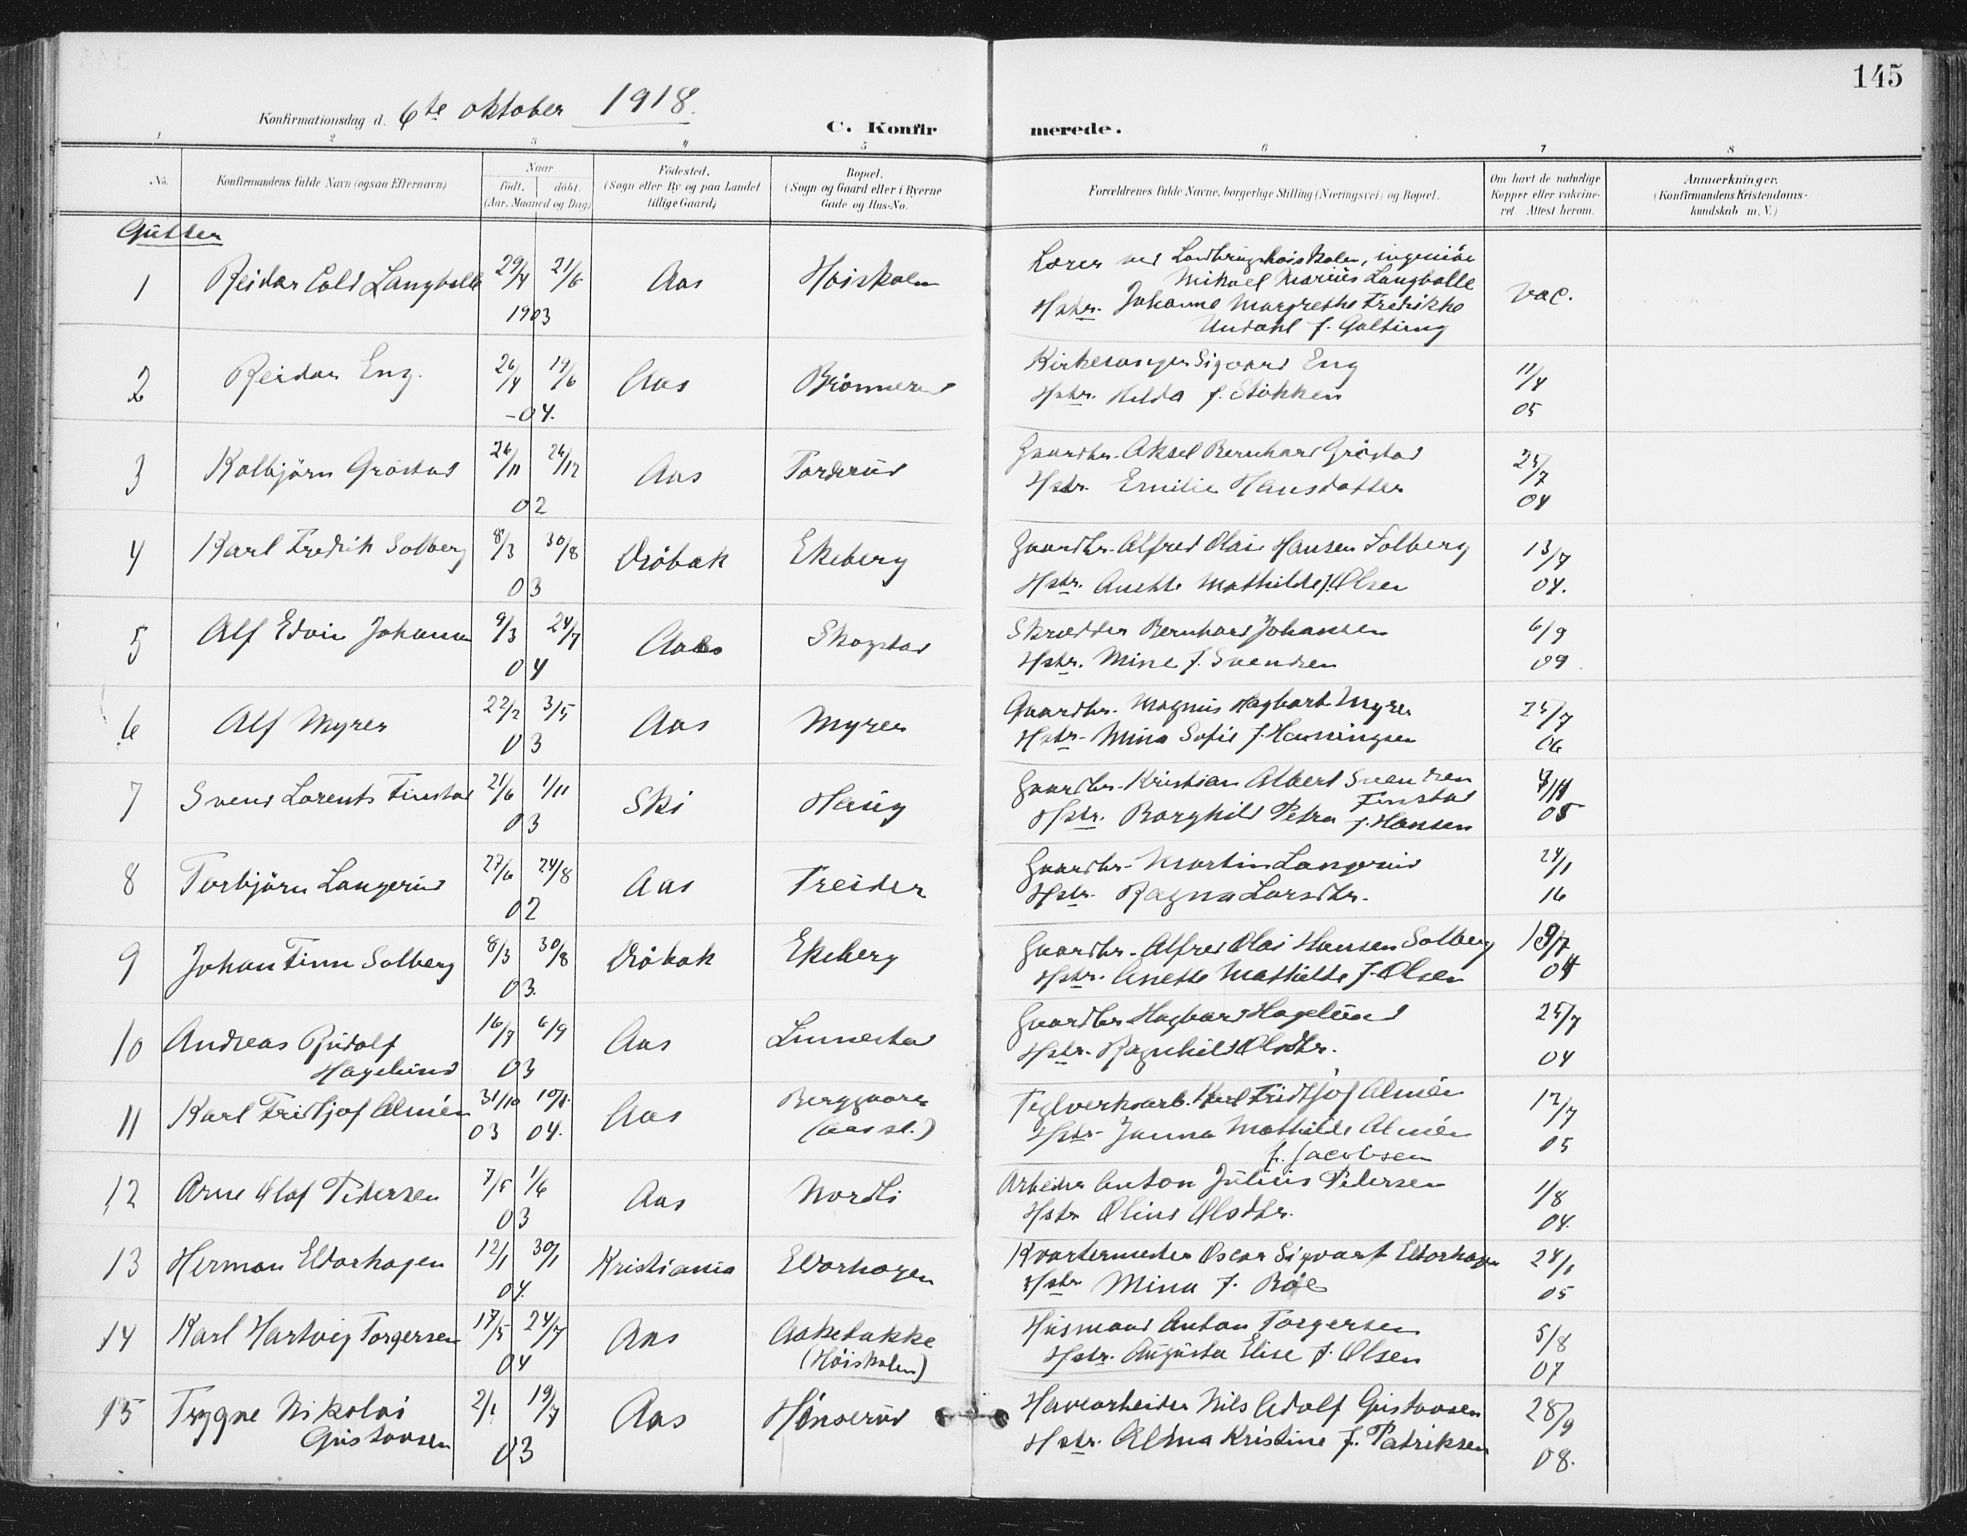 145
Konfirmationsdag d. 6te oktober 1918.
C. Konfirmerede.
1 2 3 4 5 6 7 8
No. Konfirmandens fulde Navn (ogsaa Efternavn) Naar født. døbt. (Aar, Maaned og Dag) Fødested. (Sogn eller By og paa Landet tillige Gaard) Bopæl. (Sogn og Gaard eller i Byerne Gade og Hus-No. Forældrenes fulde Navne, borgerlige Stilling (Næringsvei) og Bopæl. Om havt de naturlige Kopper eller vakcineret Attest herom. Anmærkninger. (Konfirmandens Kristendomskundskab m. V.)
Gutter
1 Reidar Cold Langballe 29/4 21/6 1903 Aas Høiskolen Lærer ved Landbrugshøiskolen, ingeniør
Mikael Marius Langballe
Hstr. Johanne Margrethe Fredrikke
Undahl f. Galtung vac.
2 Reidar Eng. 26/4 19/6 -04. Aas Brønnerud Kirkesanger Sigvard Eng
Hstr. Hilda f. Stokken 11/4 05
3 Kolbjørn Grøstad 26/11 26/12 02 Aas Torderud Gaardbr. Aksel Bernhard Grøstad
Hstr. Emilie Hansdatter 25/7 04
4 Karl Fredrik Solberg 8/3 30/8 03 Drøbak Ekeberg Gaardbr. Alfred Olai Hansen Solberg
Hstr. Anette Mathilde f. Olsen 13/7 04.
5 Alf Edvin Johansen 9/3 24/7 04 Aas Skogstad Skrædder Bernhard Johansen
Hstr. Mine f. Svendsen 6/9 09
6 Alf Myrer 22/2 3/5 03 Aas Myrer Gaardbr. Magnus Hagbart Myrer
Hstr. Mina Sofie f. Henningsen 25/7 06
7 Svend Lorents Finstad 21/6 1/11 03 Ski Haug Gaardbr. Kristian Albert Svendsen
Finstad
Hstr. Borghild Petra f. Hansen 05
8 Torbjørn Langerud 27/6 24/8 02 Aas Treider Gaardbr. Martin Langerud
Hstr. Ragna Larsdtr. 24/1 16
9 Johan Finn Solberg 8/3 30/8 03. Drøbak Ekeberg Gaardbr. Alfred Olai Hansen Solberg
Hstr. Anette Mathilde f. Olsen 04
10 Andreas Rudolf
Hagelund 16/7 6/9 03 Aas Linnestad Gaardbr Hagbard Hagelund
Hstr. Ragnhild Olsdtr. 25/7 04
11 Karl Fridtjof Almén 31/10 03 10/1. 04. Aas Berggaarden
(Aas st.) Teglverksarb. Karl Fridtjof Almén
Hstr Janna Mathilde Almén
f. Jacobsen 12/7 05
12 Arne Olaf Pedersen 7/5 1/6 03 Aas Nordli Arbeider Anton Julius Pedersen
Hstr Oline Olsdtr. 1/8 04.
13 Herman Eldorhagen 12/1 30/1 04. Kristiania Eldorhagen Kvartermester Oscar Sigvart Eldorhagen
Hstr Mina f. Bøe 24/1 05
14 Karl Hartvig Torgersen 17/5 24/7 04 Aas Aakebakke
(Høiskolen) Husmand Anton Torgersen
Hstr. Augusta Elise f. Olsen 5/8 07
15 Trygve Nikolai
Gustavsen 2/1 19/7 03 Aas Hønserud Havearbeider Nils Adolf Gustavsen
Hstr. Alma Kristine f. Patriksen 28/9 08.